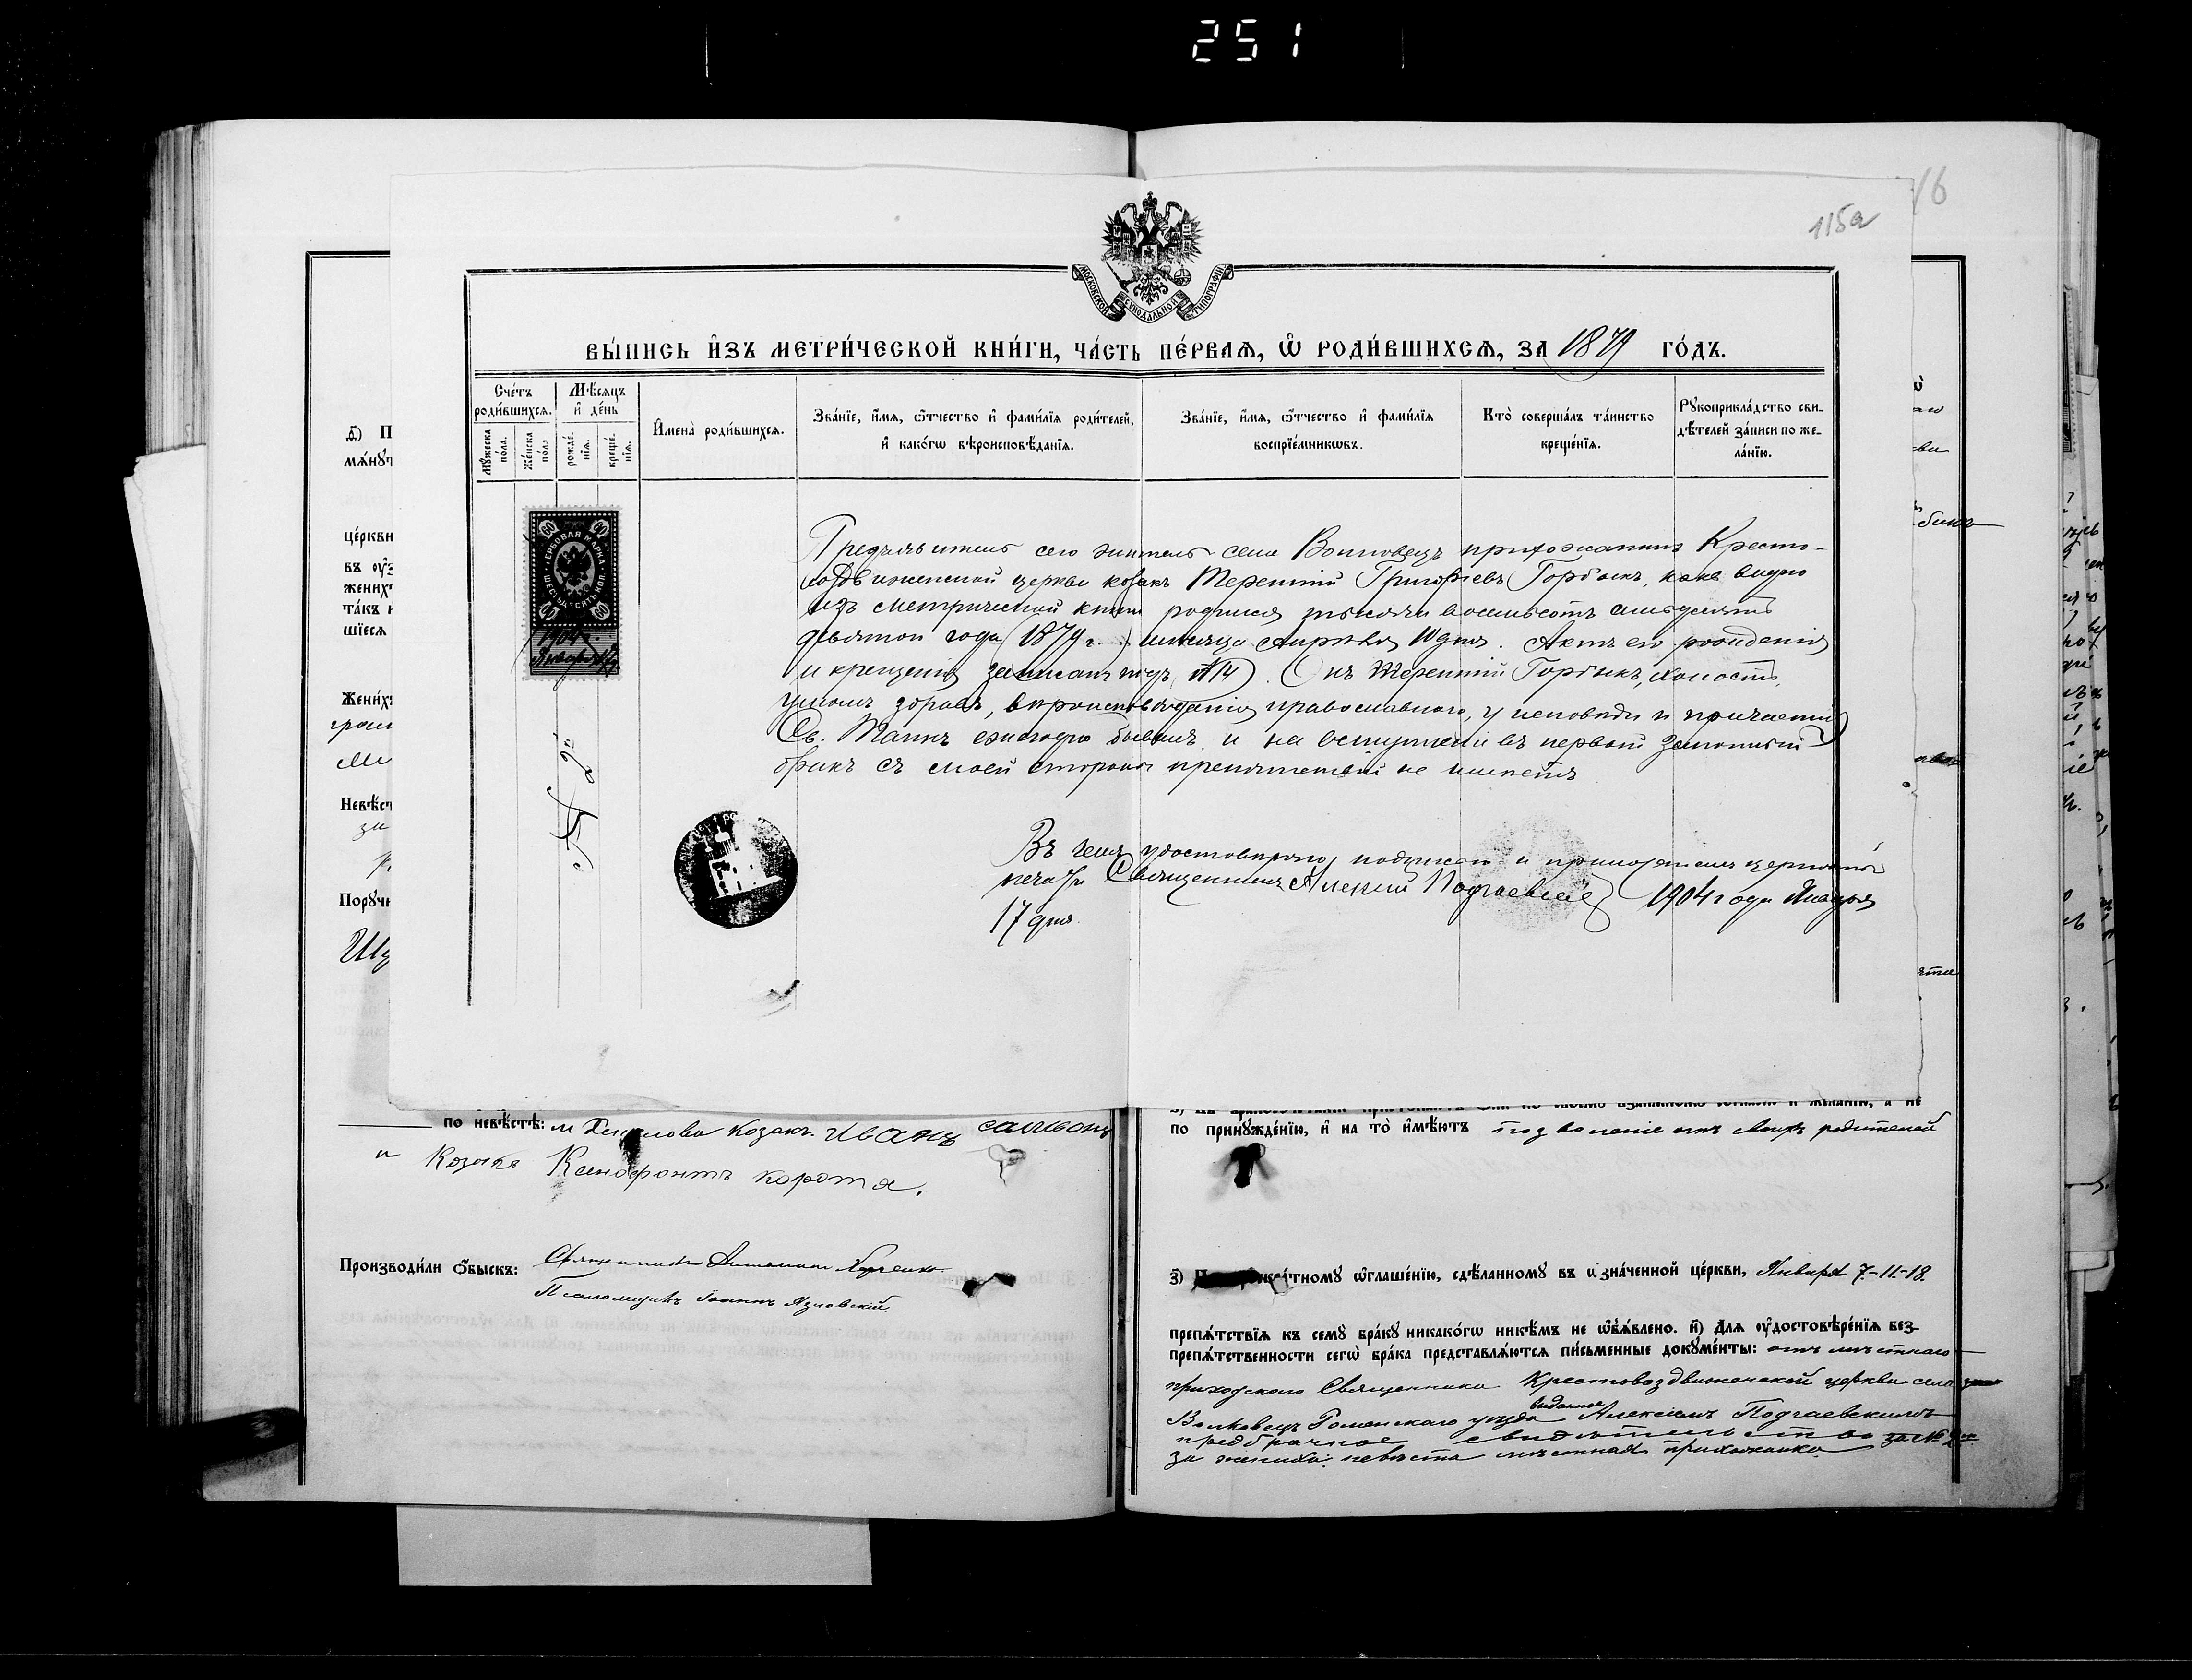 251
16
115а
МОСКОВСКОЙ СѴНОДАЛЬНОЙ ТИПОГРАФІИ
ВЫ́ПИСЬ И҆ЗЪ МЕТРИ́ЧЕСКОЙ КНИ́ГИ, ЧА́СТЬ ПЕ́РВАѦ, Ѡ҆ РОДИ́ВШИХСѦ, ЗА 1879 ГО́ДЪ.
Сче́тъ роди́вшихсѧ.
Мꙋ́жеска по́ла.
Же́нска по́ла
Мѣ́сѧцъ и҆ де́нь
рожде́нїѧ.
креще́нїѧ.
И҆мена̀ роди́вшихсѧ.
Зва́нїе, и҆́мѧ, ѻ҆́тчество и҆ фами́лїѧ роди́телей,
и҆ како́гѡ вѣроисповѣ́данїѧ.
Зва́нїе, и҆́мѧ, ѻ҆́тчество и҆ фами́лїѧ
воспрїе́мникѡвъ.
Кто̀ соверша́лъ та́инство
креще́нїѧ.
Рꙋкоприкла́дство сви-
дѣ́телей за́писи по же-
ла́нїю.
ГЕРБОВАЯ МАРКА
ШЕСТЬДЕСЯТЪ КОП.
60 60
60 60
1904 г.
Января 17
№ 2й
Предъявитель сего житель села Волковецъ прихожанинъ Кресто-
воздвиженской церкви козакъ Терентій Григорьевъ Горбикъ, какъ видно
изъ метрической книги родился тысяча восемьсотъ семьдесятъ
девятого года (1879 г.) мѣсяца Апрѣля 10 дня. Актъ его рожденія
и крещенія записанъ подъ №14). Онъ Терентій Горбикъ, холостъ,
умомъ здравъ, вѣроисповѣданія православного, у исповѣди и причастія
Св. Таинъ ежегодно бываетъ и на вступленіе въ первый законный
бракъ съ моей стороны препятствій не имѣетъ
Въ чемъ удостовѣряю подписью и приложеніемъ церковной
печати Священникъ Алексій Подгаевскій 1904 года Января
17 дня.
д҃) П
мѧнꙋт
це́ркви
въ ᲂу҆
жених
та́къ и
шїесѧ
Жени́хъ
Невѣ́ст
за
Порꙋчи
по невѣ́стѣ: Козакъ Иванъ
и Козакъ Ксенофонтъ Коротя.
Производи́ли ѻ҆́быскъ: Священникъ
Псаломщикъ Іоаннъ Язловскій.
по принꙋжде́нїю, и҆ на то̀ и҆мѣ́ютъ позволеніе отъ своихъ родителей
з҃) кра́тномꙋ ѡ҆глаше́нїю, сдѣ́ланномꙋ въ изна́ченной це́ркви, Января 7-11-18.
препѧ́тствїѧ къ семꙋ̀ бра́кꙋ никако́гѡ никѣ́мъ не ѡ҆б̾ѧ́влено. и҃) Длѧ ᲂу҆достовѣре́нїѧ без-
препѧ́тственности сегѡ̀ бра́ка представлѧ́ютсѧ пи́сьменные докꙋме́нты: отъ мѣстнаго
приходскаго Священника Крестовоздвиженской церкви села
Волковецъ Роменскаго уѣзда выданное Алексіемъ Подгаевскимъ
предбрачное свидѣтельство за № 2м
за жениха, невѣста мѣстная прихожанка.